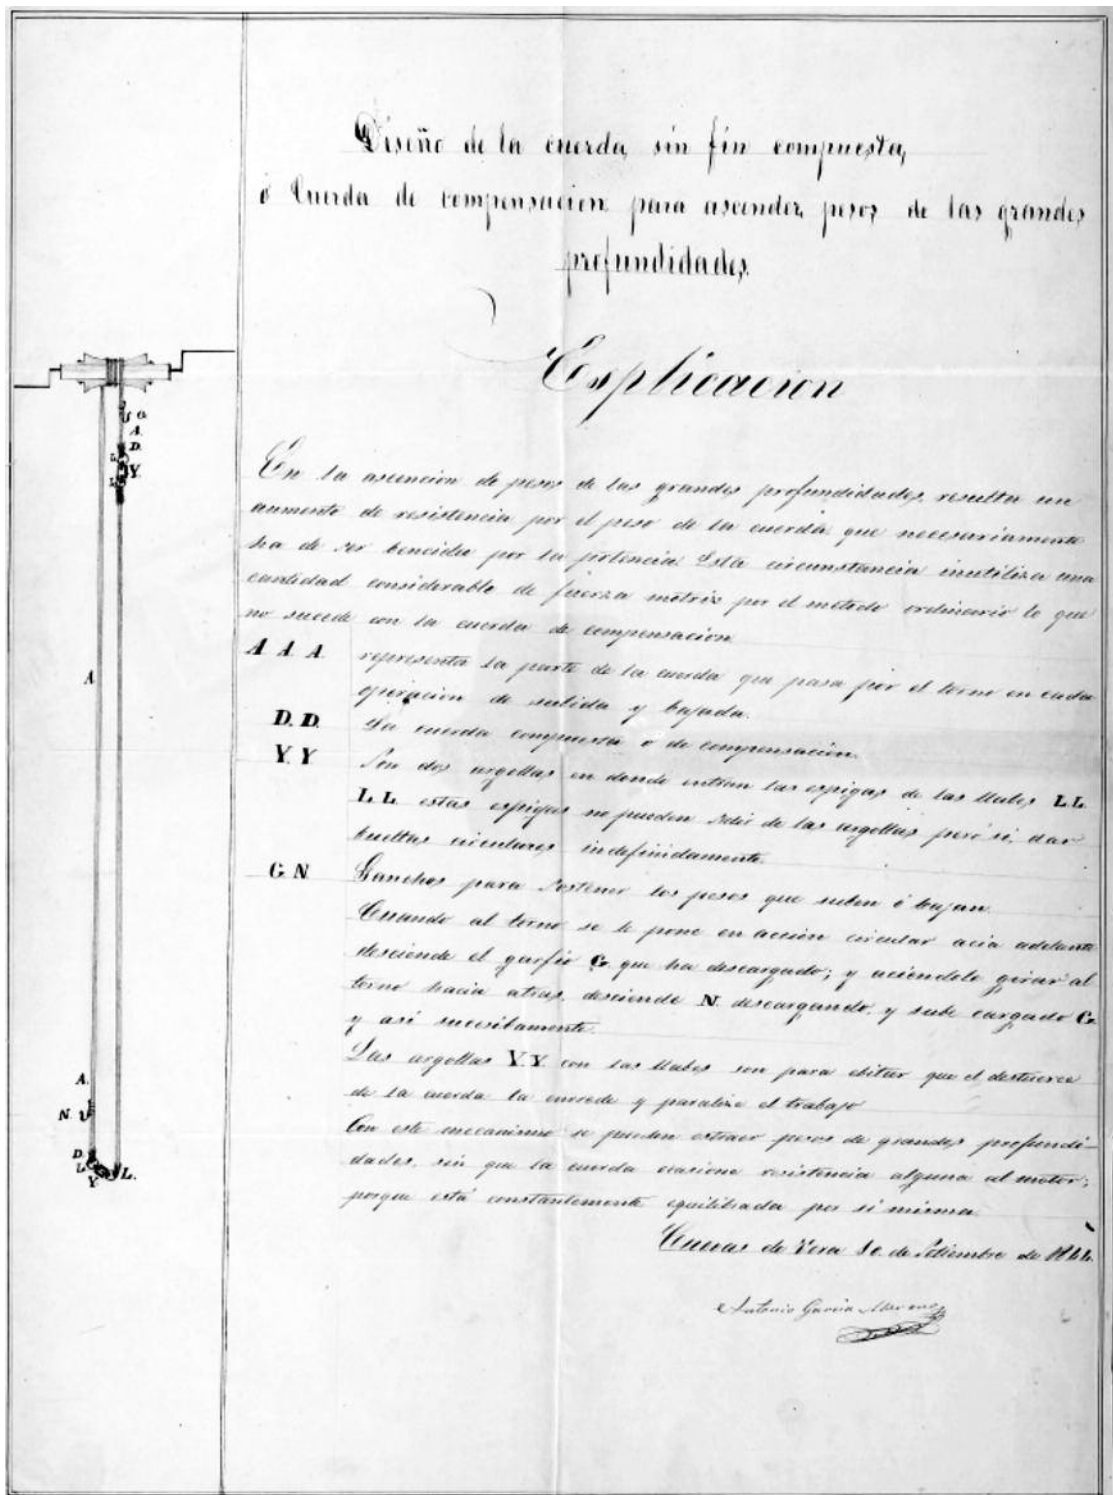 Diseño de la cuerda sin fin compuesta,
ó Cuerda de compensacion para ascender pesos de las grandes
profundidades.
Esplicacion
En la ascencion de pesos de las grandes profundidades, resulta un
aumento de resistencia por el peso de la cuerda que necesariamente
ha de ser bencida por la potencia. Esta circunstancia inutiliza una
cantidad considerable de fuerza motriz por el metodo ordinario lo que
no sucede con la cuerda de compensacion.
A A A representa la parte de la cuerda que pasa por el torno en cada
operacion de subida y bajada.
D. D. La cuerda compuesta ó de compensación.
Y. Y Son dos argollas en donde entran las espigas de las llabes L.L.
L. L. estas espigas no pueden salir de las argollas pero si, dar
bueltas circulares indefinidamente.
G. N. Ganchos para sostener los pesos que suben ó bajan.
Cuando al torno se le pone en acción circular acia adelante
desciende el garfio G. que ha descargado; y aciendole girar al
torno hacia atras, desciende N. descargando, y sube cargado G.
y asi sucesibamente.
Las argollas Y.Y. con las llabes son para ebitar que el destuerce
de la cuerda la enrede y paralize el trabajo
Con este mecanismo se pueden estraer pesos de grandes profundi-
dades, sin que la cuerda ocasione resistencia alguna al motor;
porque está constantemente equilibrada por si misma.
Cuevas de Vera de Setiembre de
Antonio Garcia Moreno
G.
A.
D.
L
Y.
L
A
A.
N.
D.
L
Y
L.